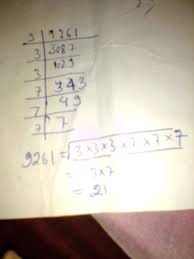 3 9261
3 3087
3 1029
7 343
7 49
7 7
9261 = √3×3×3×7×7×7
= 3×7
= 21